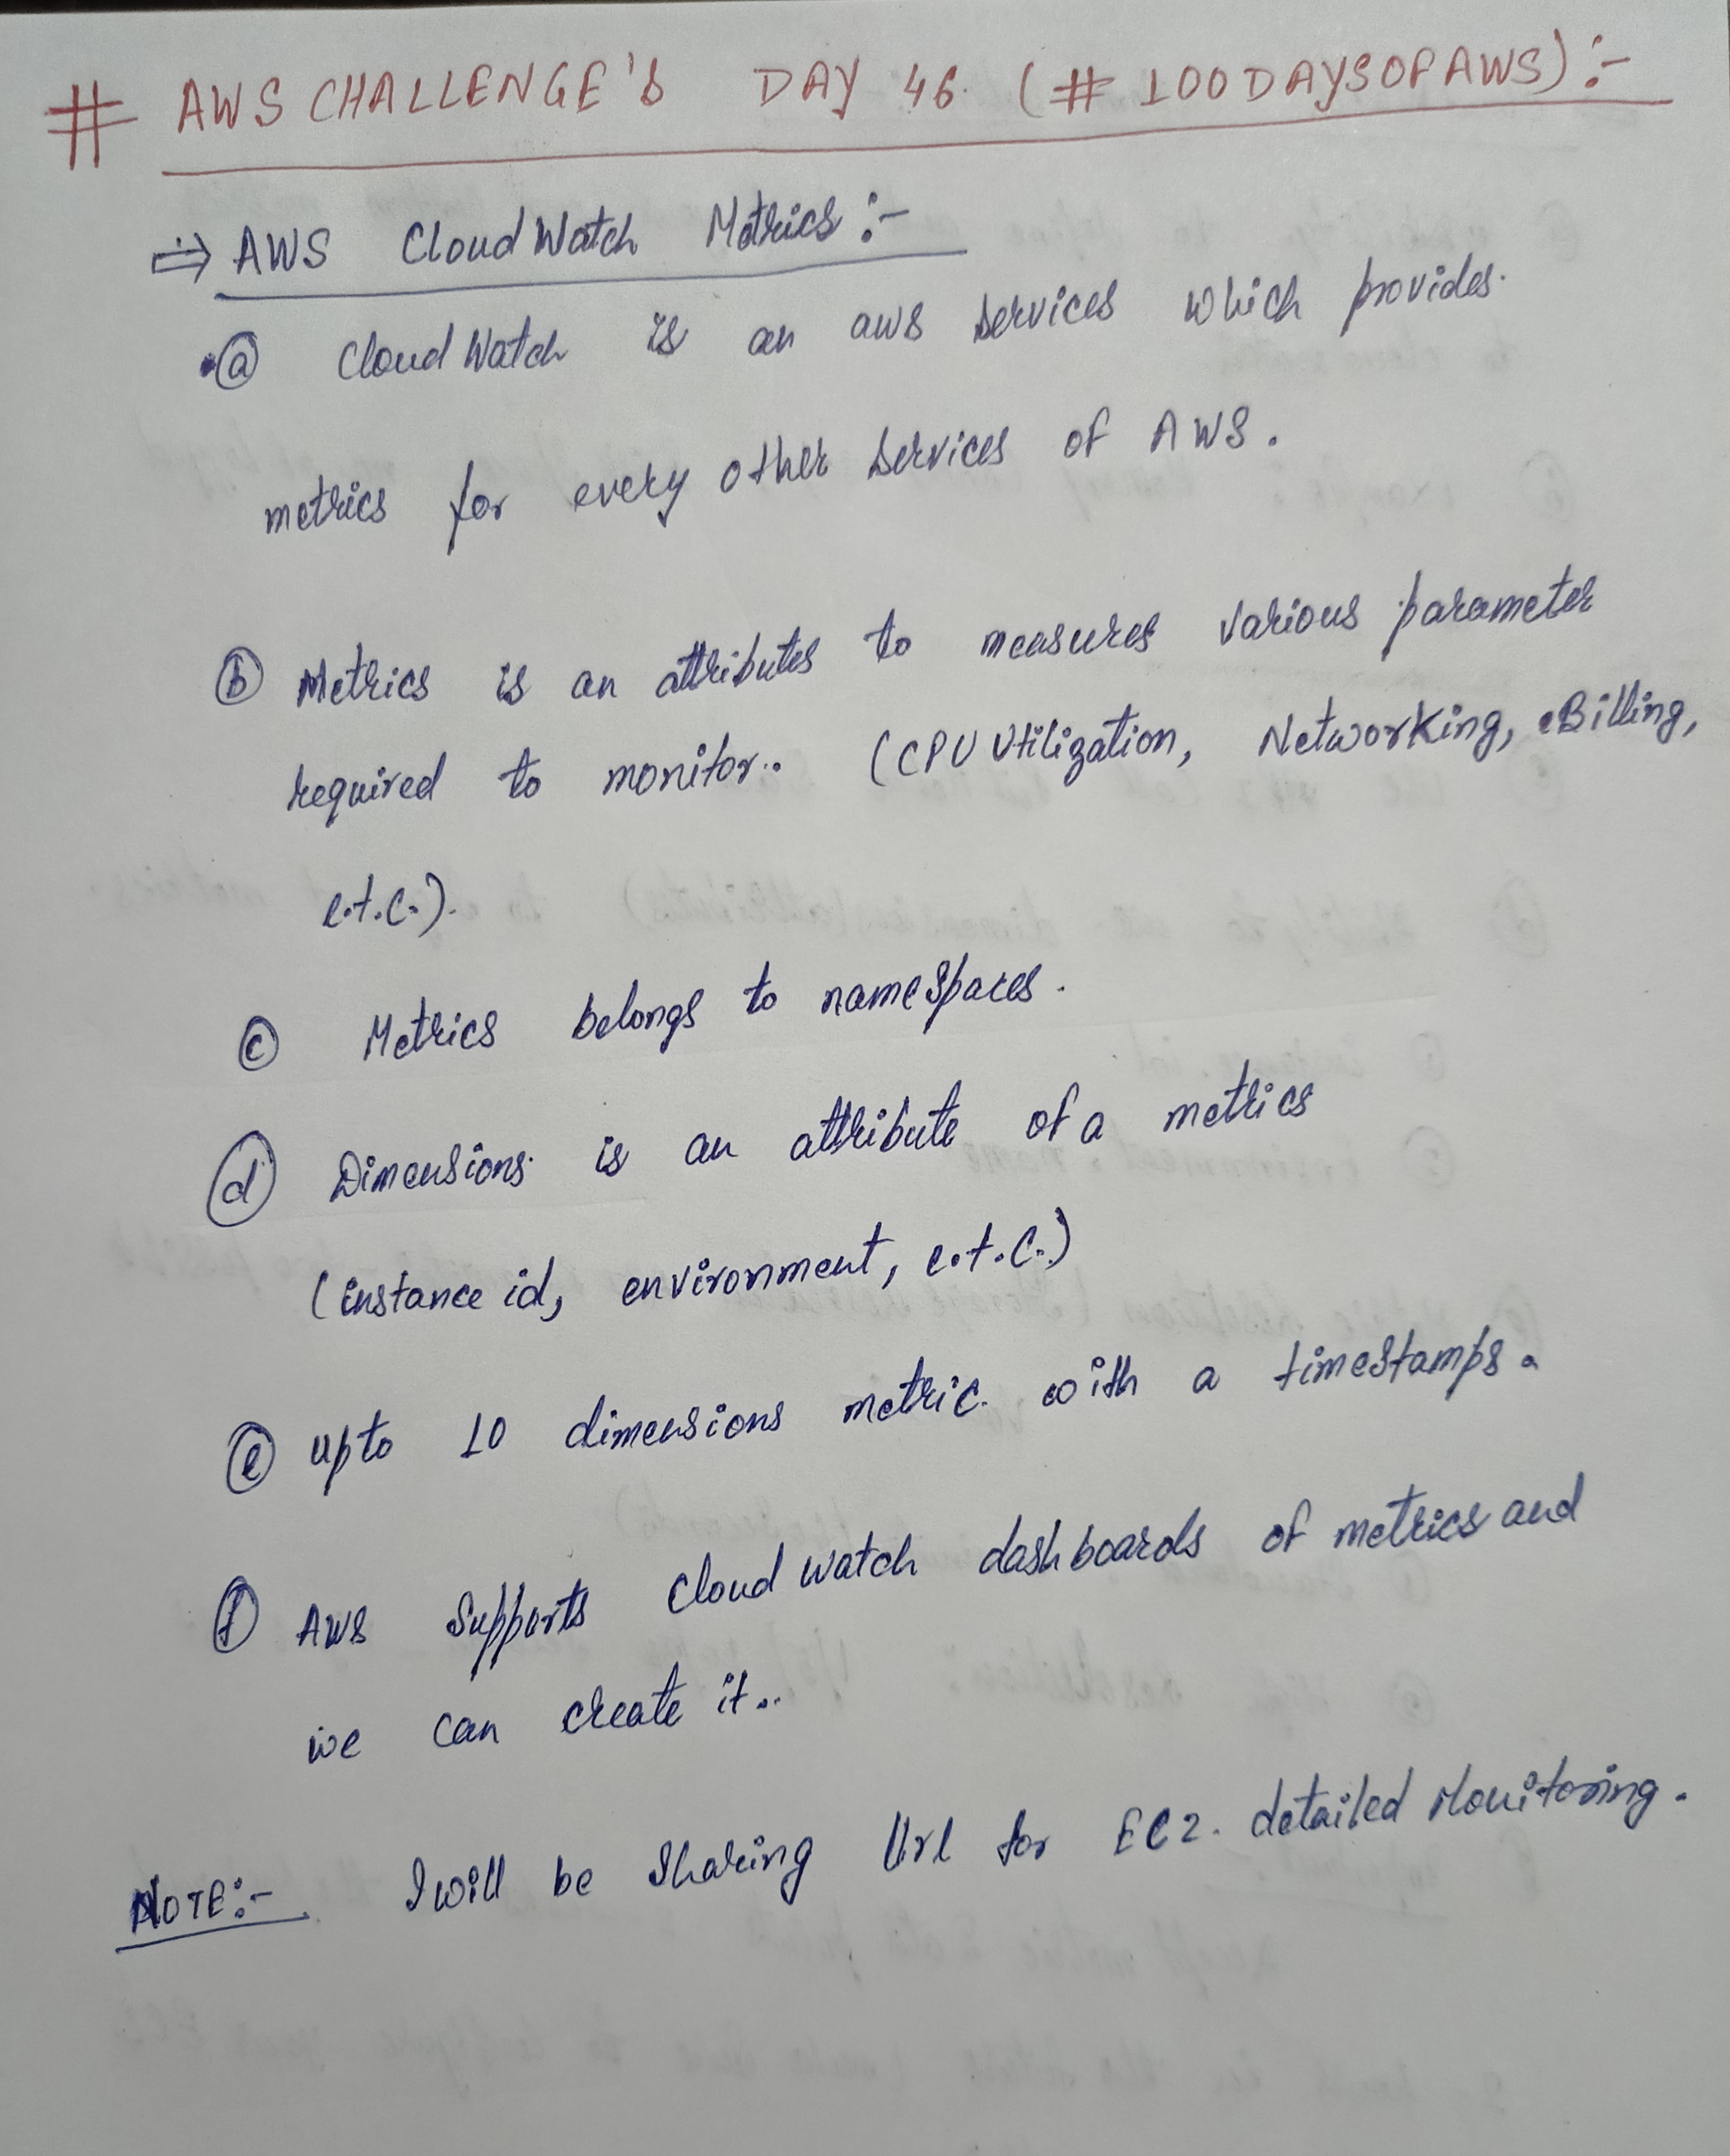 # AWS CHALLENGE'S DAY 46. (# 100DAYSOFAWS):-
⇒ AWS CloudWatch Metrics:-
ⓐ CloudWatch is an aws services which provides.
metrics for every other services of AWS.
ⓑ Metrics is an attributes to measures various parameter
required to monitor.. (CPU Utilization, Networking, Billing,
e.t.c.).
ⓒ Metrics belongs to namespaces.
ⓓ Dimensions is an attribute of a metrics
(instance id, environment, e.t.c.)
ⓔ upto 10 dimensions metric. with a timestamps.
ⓕ AWS Supports cloudwatch dashboards of metrics and
we can create it..
NOTE:- I will be Sharing Url for EC2. detailed Monitoring.